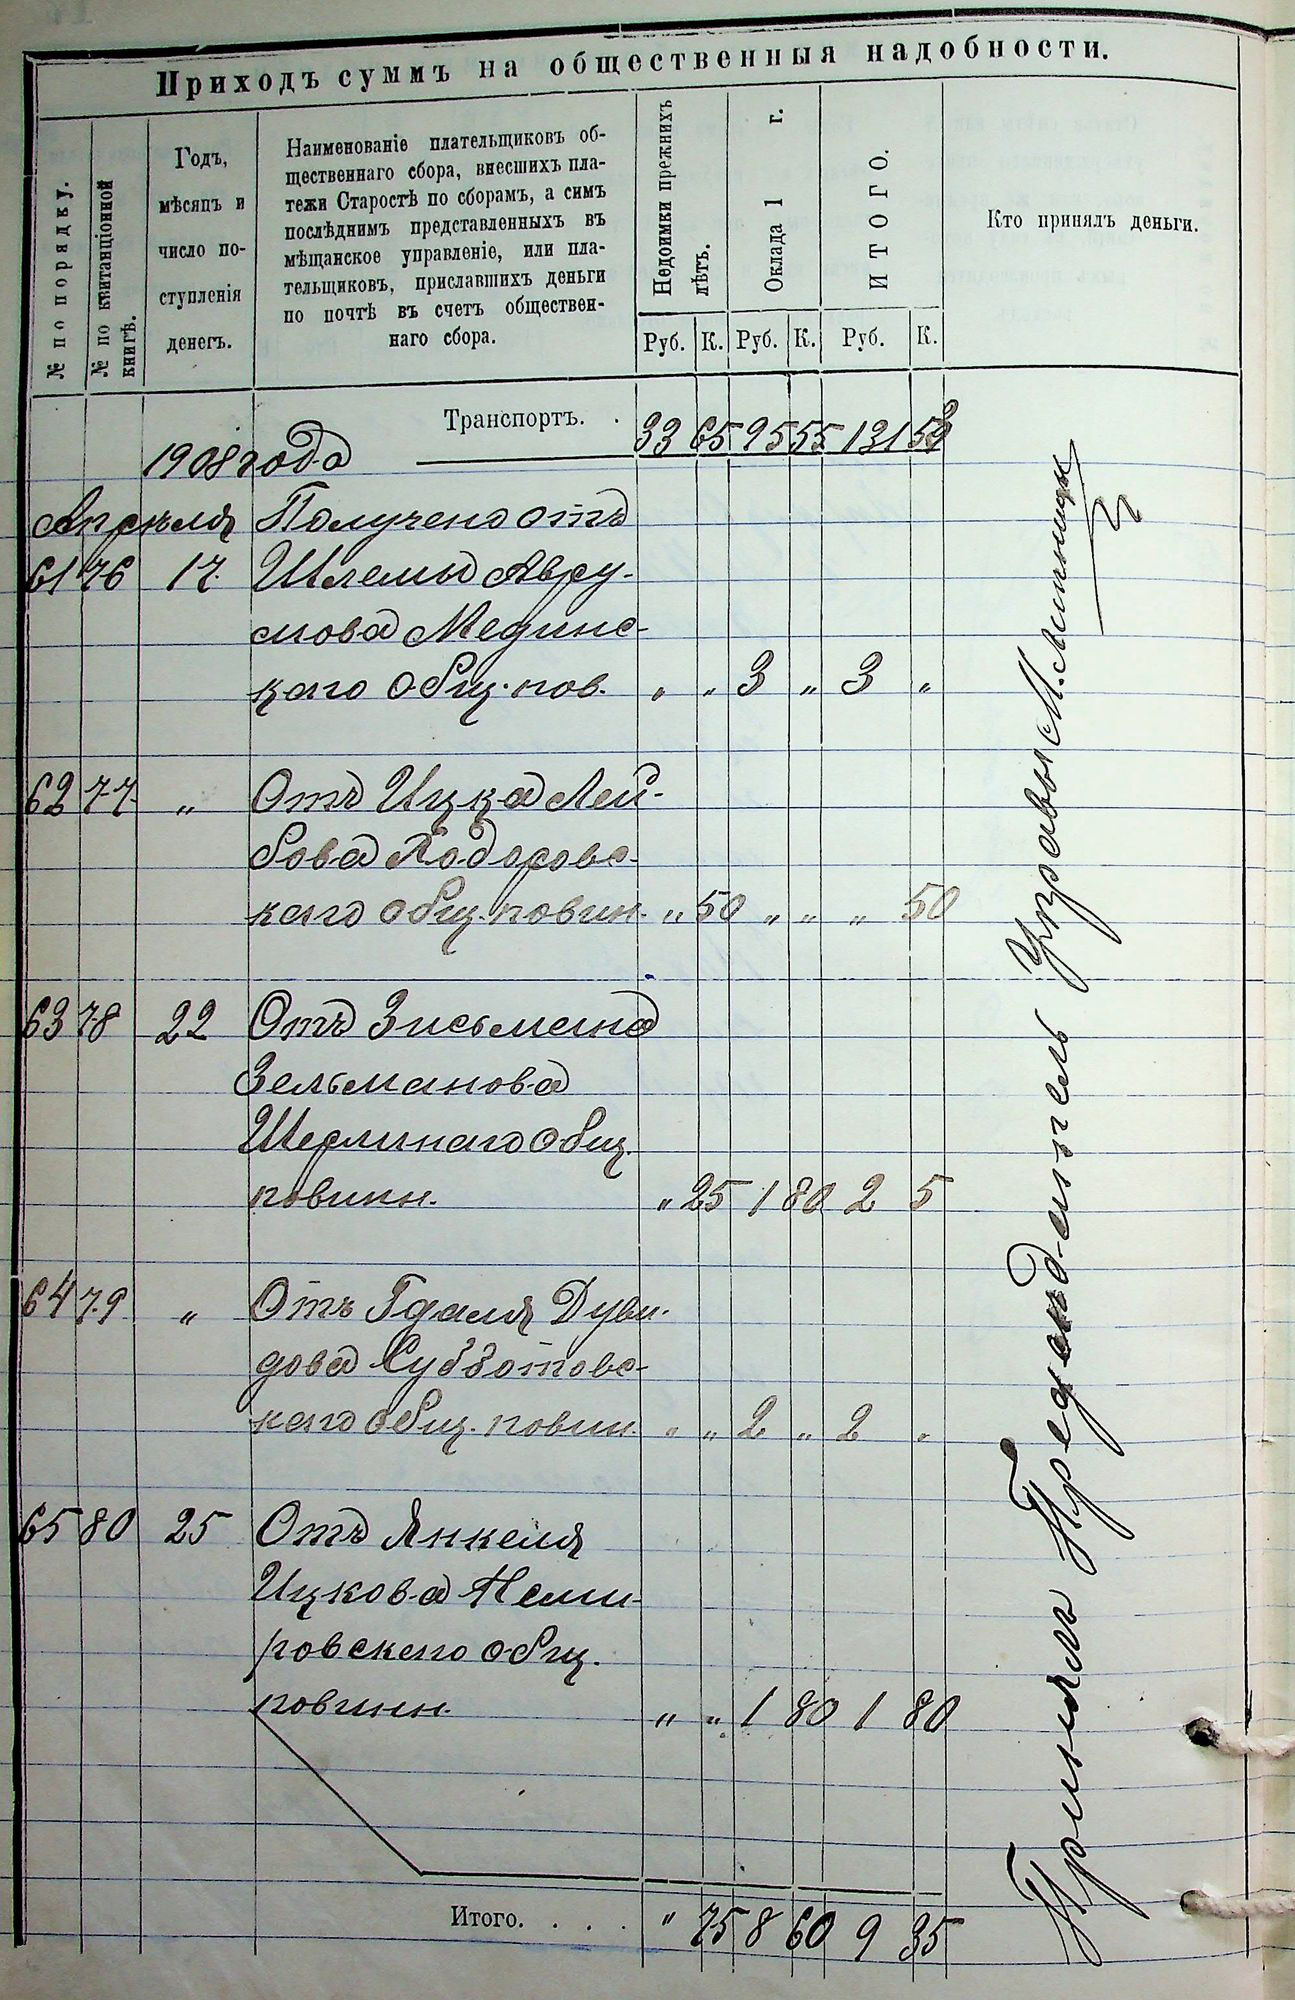 Приходъ суммъ на общественныя надобности.
№ по порядку.
№ по квитанціонной книгѣ.
Годъ,
мѣсяцъ и
число по-
ступленія
денегъ.
Наименованіе плательщиковъ об-
щественнаго сбора, внесшихъ пла-
тежи Старостѣ по сборамъ, а симъ
послѣднимъ представленныхъ въ
мѣщанское управленіе, или пла-
тельщиковъ, приславшихъ деньги
по почтѣ въ счетъ обществен-
наго сбора.
Недоимки прежнихъ
лѣтъ.
Оклада 1 г.
ИТОГО.
Кто принялъ деньги.
Руб. К. Руб. К. Руб. К.
Транспортъ. . 33 65 95 55 131 53
1908 года
Апрѣля Получено отъ
61 76 17. Шлемы Авру-
мова Мединс-
каго общ. пов. " " 3 " 3 "
62 77 " Отъ Ицка Лей-
бова Ходоровс-
каго общ. повин. " 50 " " " 50
63 78 22 Отъ Зисьмана
Зельманова
общ.
повинн. " 25 1 80 2 5
64 79 " Отъ Гдаля Дуви-
дова Субботовс-
каго общ. повин. " " 2 " 2 "
65 80 25 Отъ Янкеля
Ицкова Неми-
ровскаго общ.
повинн. " " 1 80 1 80
Итого. . . . " 75 8 60 9 35
Принялъ Предсѣдатель Управы